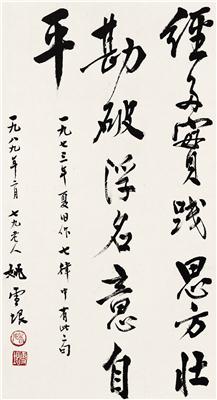 經多實踐思方壮
勘破浮名意自
平
一九七三年夏旧作七律中有此二句
一九八九年二月 七九老人 姚雪垠